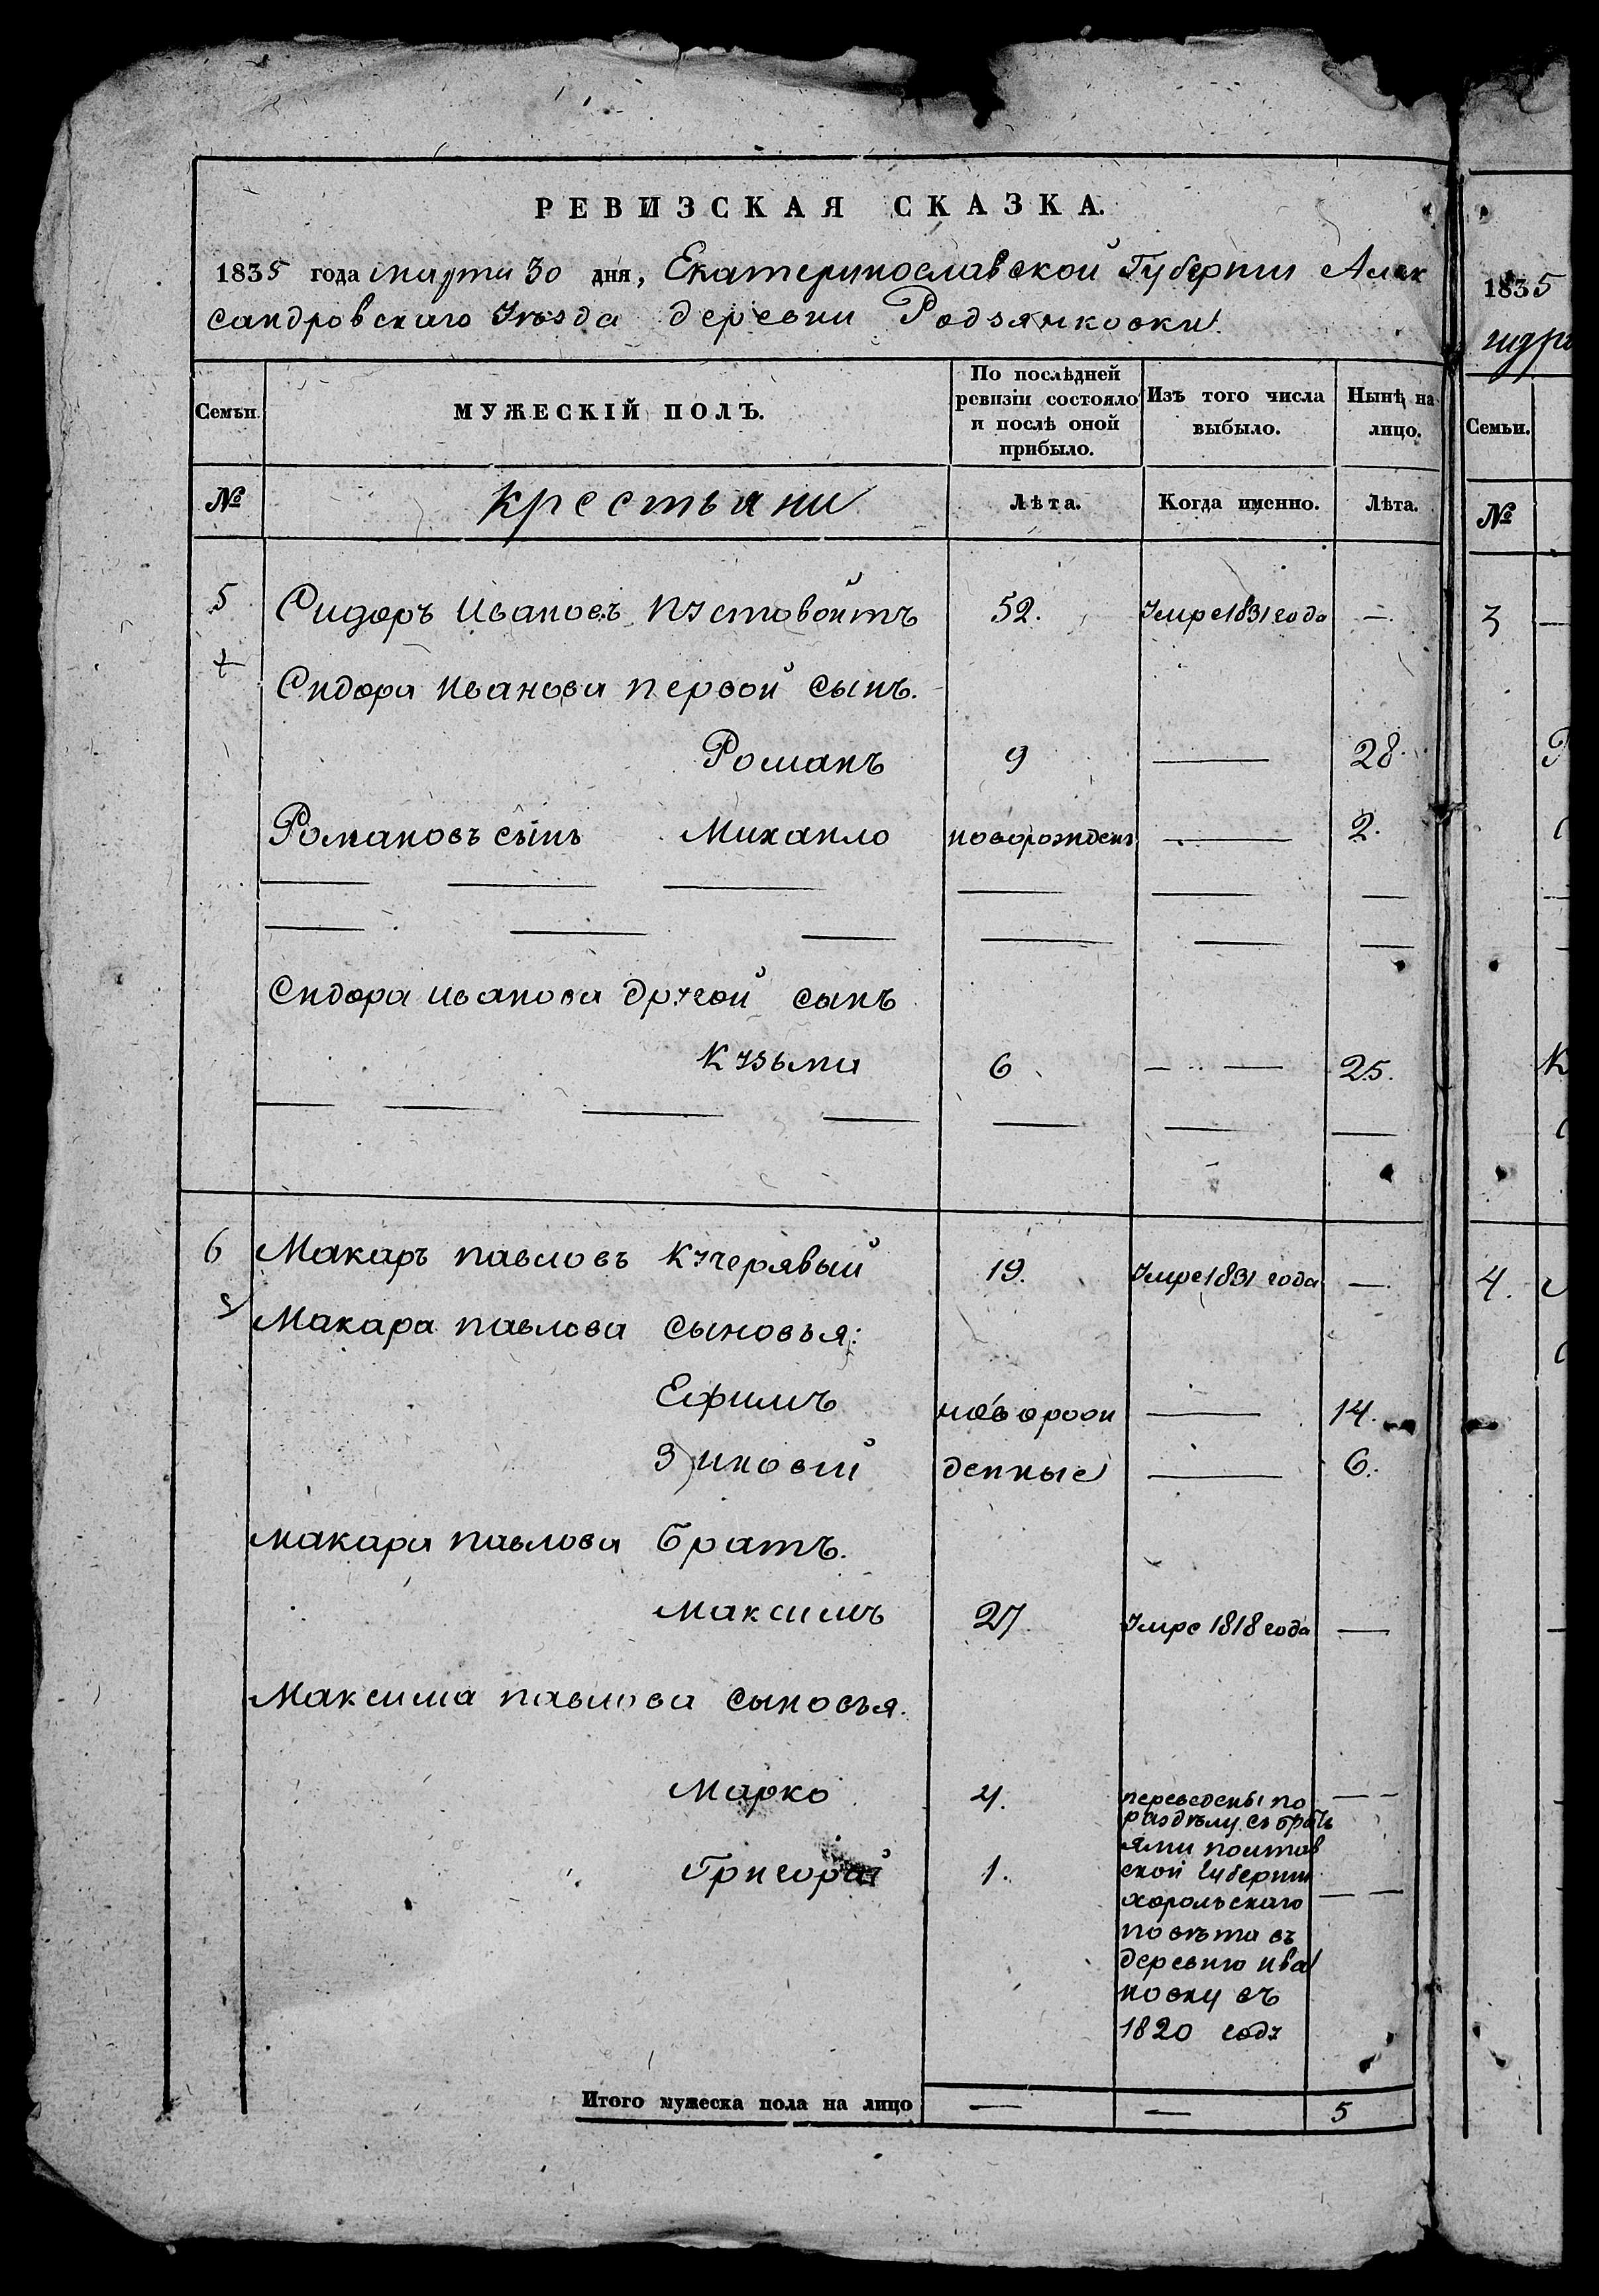 РЕВИЗСКАЯ СКАЗКА.
1835 года марта 30 дня, Екатеринославской Губерніи Алек
сандровскаго Уѣзда деревни Родзянковки
Семьи.
МУЖЕСКІЙ ПОЛЪ.
По послѣдней ревизіи состояло и послѣ оной прибыло.
Изъ того числа выбыло.
Нынѣ на лицо.
№
крестьяни
Лѣта.
Когда именно.
Лѣта.
5 Сидоръ Ивановъ Пустовойтъ 52. Умре 1831 года —
Сидора Иванова первой сынъ.
Романъ 9 — 28
Романовъ сынъ Михаило новорожденъ — 2.
Сидора Иванова другой сынъ
Кузьма 6 — 25.
6 Макаръ Павловъ Кучерявый 19. Умре 1831 года —
Макара Павлова сыновья:
Ефимъ новорож — 14.
Зиновій денные — 6.
Макара Павлова братъ.
Максимъ 27 Умре 1818 года —
Максима Павлова сыновья.
Марко 4. переведены по — —
раздѣлу съ брать
ями полтав
Григорій 1. ской губерніи
хорольскаго — —
повѣта въ
деревню Ива
новку въ
1820 году
Итого мужеска пола на лицо — — 5
1835
Семьи.
№
3
4.